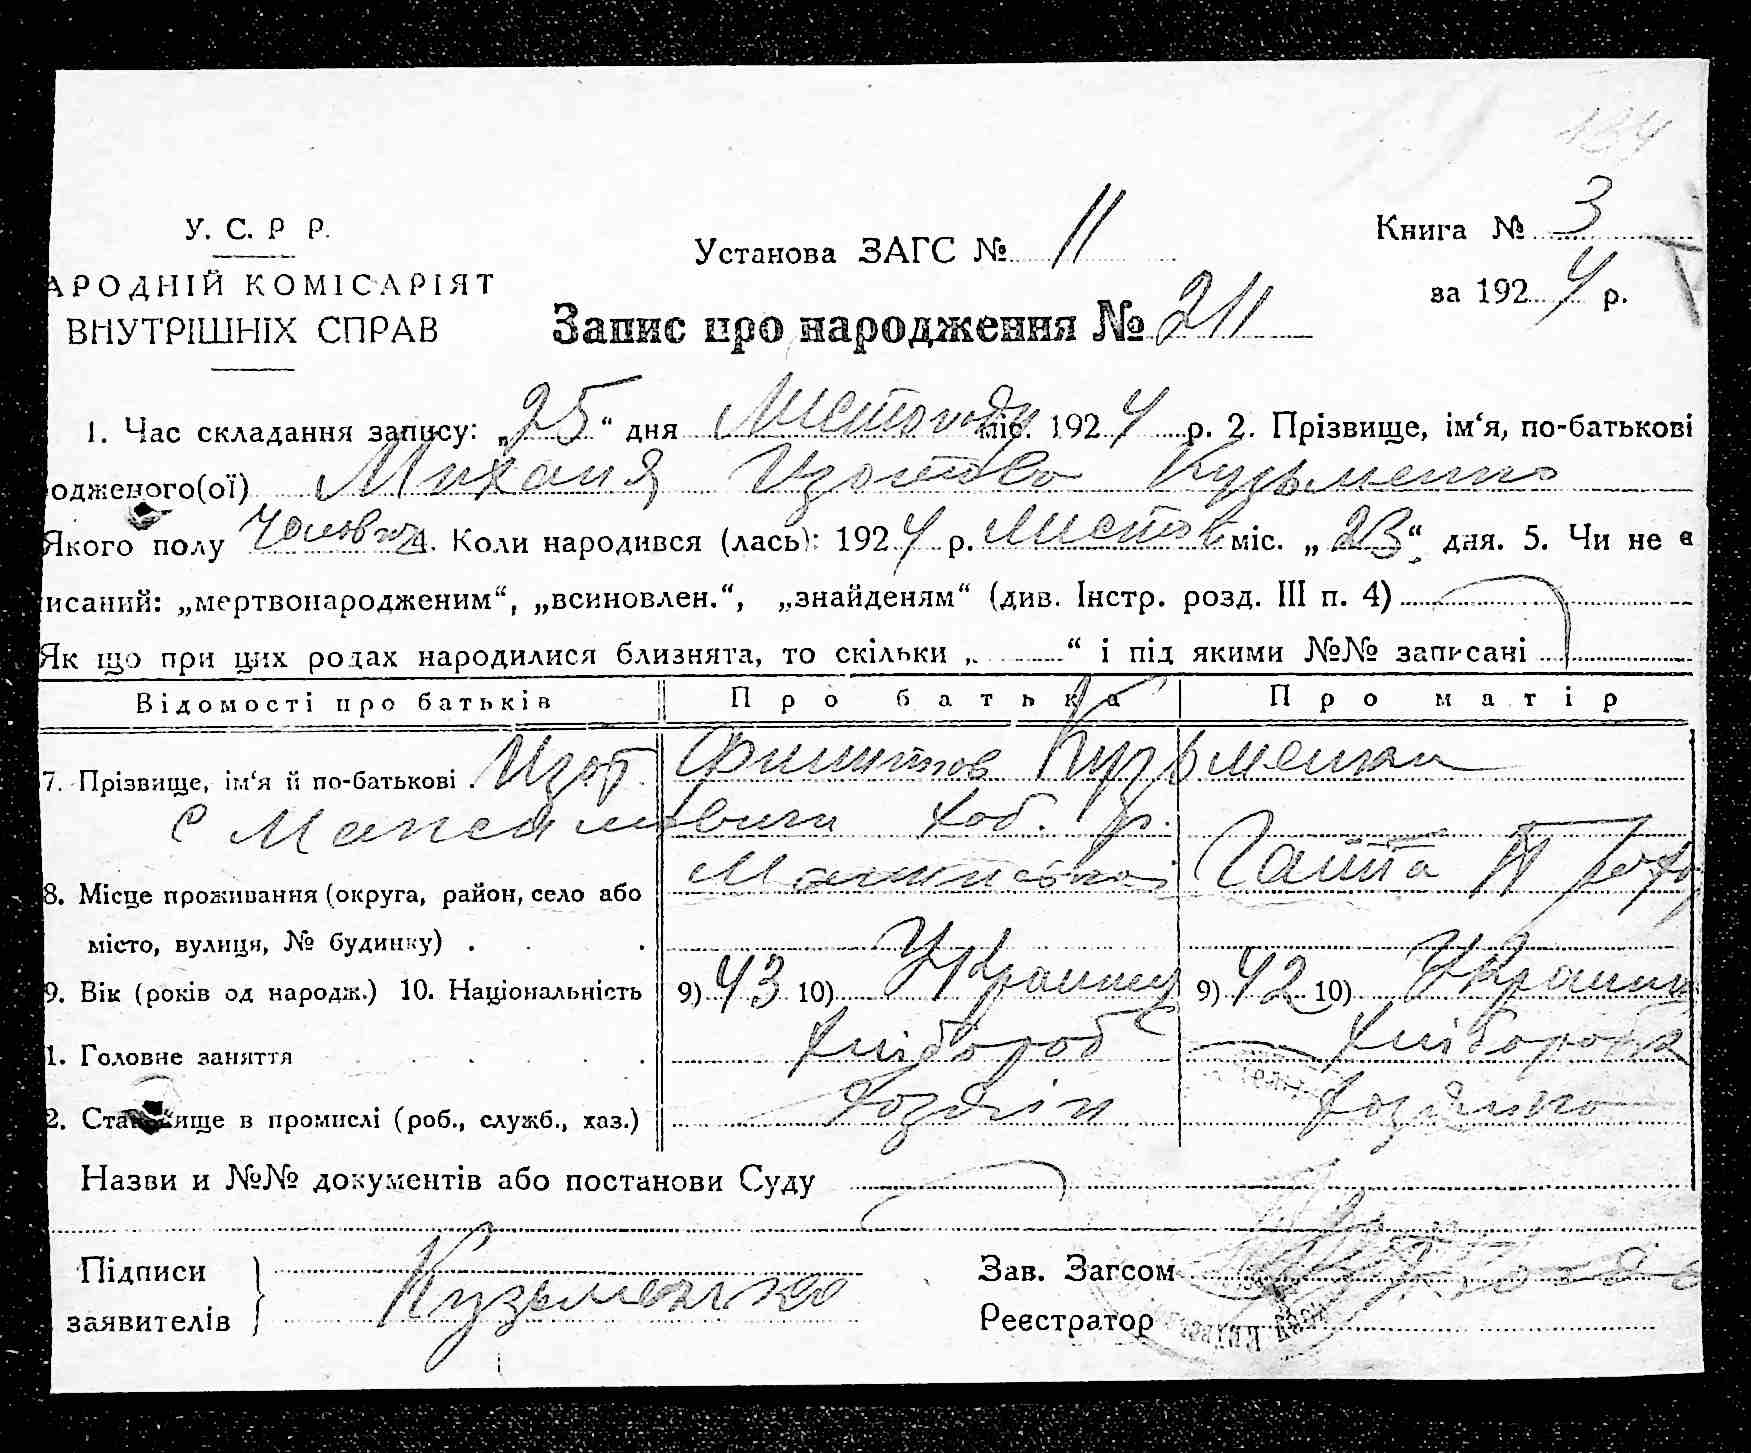 У. С. Р Р.
Установа ЗАГС № 11
Книга № 3
АРОДНІЙ КОМІСАРІЯТ
за 1924 р.
ВНУТРІШНІХ СПРАВ
Запис про народження № 211
1. Час складання запису: „25“ дня Листопаду міс. 1924 р. 2. Прізвище, ім‘я, по-батькові
одженого(ої) Михаил Изотово Кузьменко
Якого полу Чоловіч 4. Коли народився (лась): 1924 р. Листоп міс. „23“ дня. 5. Чи не є
исаний: „мертвонародженим“, „всиновлен.“, „знайденям“ (див. Інстр. розд. III п. 4)
Як що при цих родах народилися близнята, то скільки „ “ і під якими №№ записані
Відомості про батьків Про батька Про матір
7. Прізвище, ім‘я й по-батькові . Изот Кузьменко
с
Гапта
8. Місце проживання (округа, район, село або
місто, вулиця, № будинку) .
9. Вік (років од народж.) 10. Національність 9) 43 10) Украинец 9) 42 10) Украинк
1. Головне заняття Хлібороб Хлібороб
2. Становище в промислі (роб., служб., хаз.) Хозяін Хозяйка
Назви и №№ документів або постанови Суду
Підписи заявителів Кузьменко
Зав. Загсом
Реєстратор